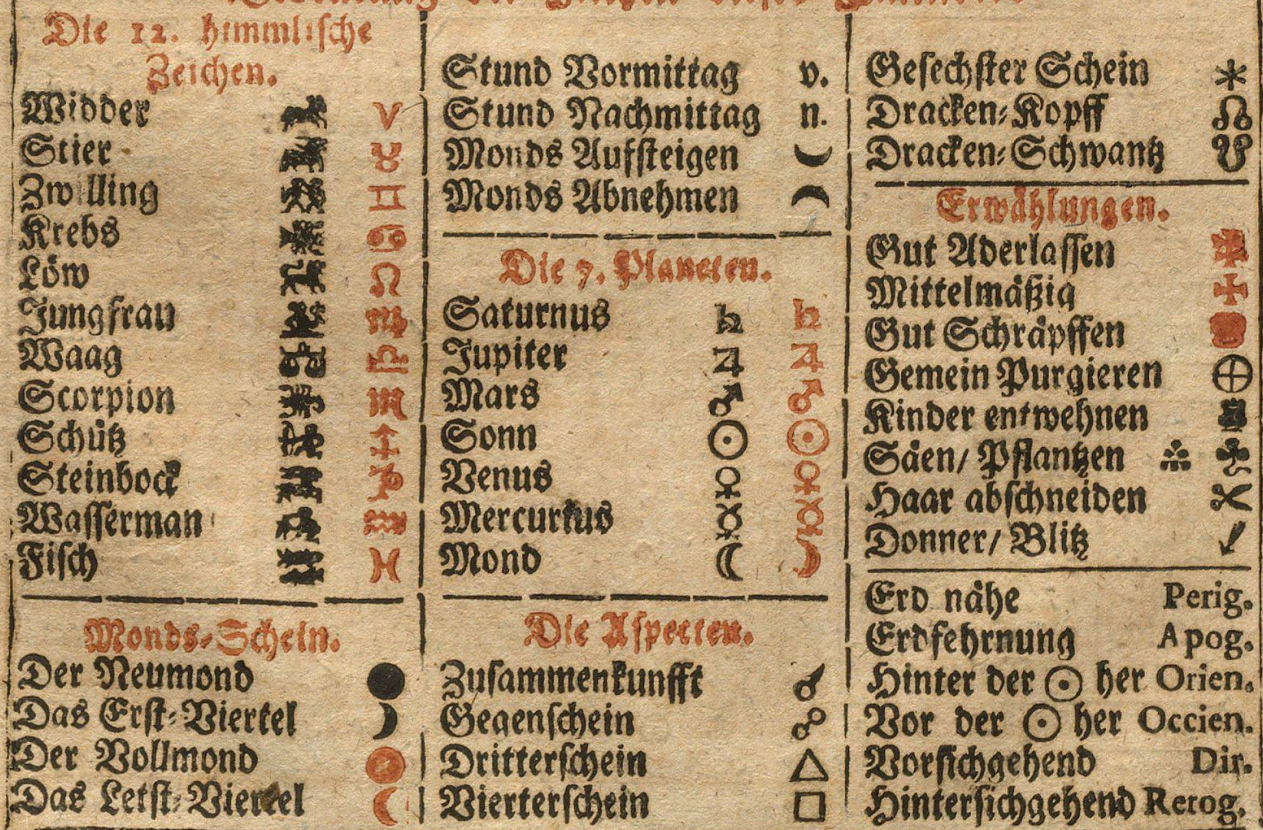 Die 12. himmlische
Zeichen.
Widder ♈
Stier ♉
Zwilling ♊
Krebs ♋
Löw ♌
Jungfrau ♍
Waag ♎
Scorpion ♏
Schütz ♐
Steinbock ♑
Wasserman ♒
Fisch ♓
Monds-Schein.
Der Neumond
Das Erst-Viertel
Der Vollmond
Das Letst-Viertel
Stund Vormittag v.
Stund Nachmittag n.
Monds Aufsteigen
Monds Abnehmen
Die 7. Planeten.
Saturnus ♄ ♄
Jupiter ♃ ♃
Mars ♂ ♂
Sonn ☉ ☉
Venus ♀ ♀
Mercurius ☿ ☿
Mond ☾ ☽
Die Aspecten.
Zusammenkunfft ☌
Gegenschein ☍
Dritterschein △
Vierterschein □
Gesechster Schein ⚹
Dracken-Kopff ☊
Dracken-Schwantz ☋
Erwählungen.
Gut Aderlassen
Mittelmäßig
Gut Schräpffen
Gemein Purgieren
Kinder entwehnen
Säen/ Pflantzen
Haar abschneiden
Donner/ Blitz
Erd nähe Perig.
Erdfehrnung Apog.
Hinter der ☉ her Orien.
Vor der ☉ her Occien.
Vorsichgehend Dir.
Hintersichgehend Retog.